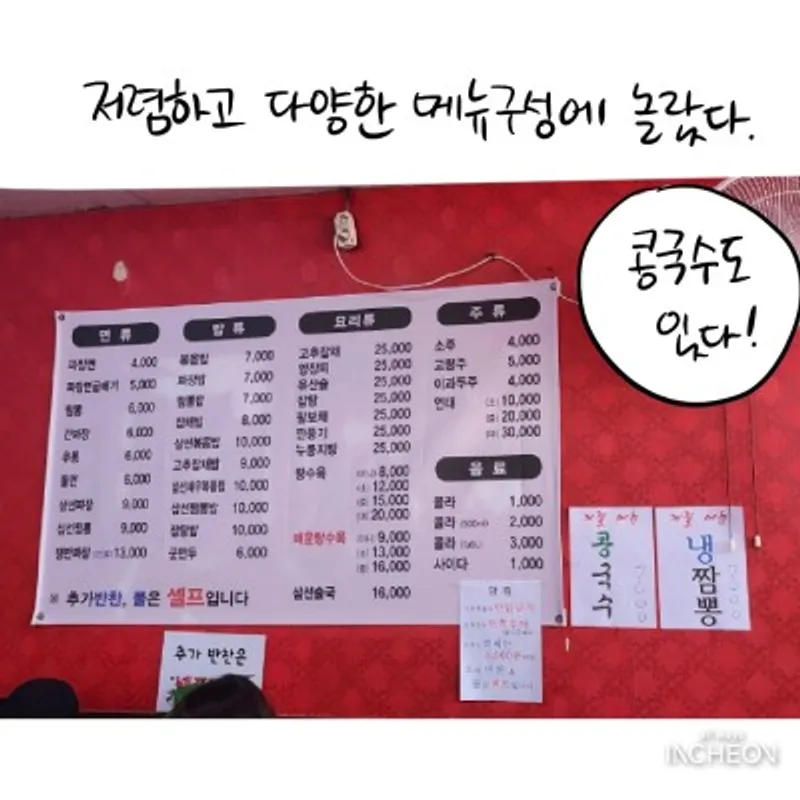 저렴하고 다양한 메뉴구성에 놀랐다.
콩국수도
있다!
면 류
짜장면 4,000
짜장면곱배기 5,000
짬뽕 6,000
간짜장 6,000
우동 6,000
울면 6,000
삼선짜장 9,000
삼선짬뽕 9,000
쟁반짜장 13,000
밥 류
볶음밥 7,000
짜장밥 7,000
짬뽕밥 7,000
잡채밥 8,000
삼선볶음밥 10,000
고추잡채밥 9,000
삼선새우볶음밥 10,000
삼선짬뽕밥 10,000
잡탕밥 10,000
군만두 6,000
요리류
고추잡채 25,000
양장피 25,000
유산슬 25,000
잡탕 25,000
팔보채 25,000
깐풍기 25,000
누룽지탕 25,000
탕수육 8,000
12,000
15,000
20,000
매운탕수육 9,000
13,000
16,000
삼선술국 16,000
주 류
소주 4,000
고량주 5,000
이과두주 4,000
연태 (소) 10,000
(중) 20,000
(대) 30,000
음 료
콜라 1,000
콜라 (500ml) 2,000
콜라 3,000
사이다 1,000
※ 추가반찬, 물은 셀프입니다
콩국수
7000
냉짬뽕
7000
추가 반찬은
INCHEON